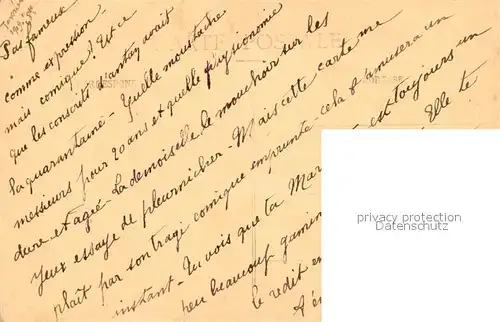 Pas fameux
comme expression
mais comique! Est ce
que les conscrits d'antan avait
la quarantaine - Quelle moustache
messieurs pour 20 ans et quelle physionomie
dure et agée - La demoiselle le mouchoir sur les
yeux essaye de pleurnicher - Mais cette carte me
plaît par son tragi comique emprunté - cela t'amusera un
instant - Tu vois que ta Mar est toujours un
peu beaucoup gamin Elle te
le redit en
CARTE POSTALE
privacy protection
Datenschutz